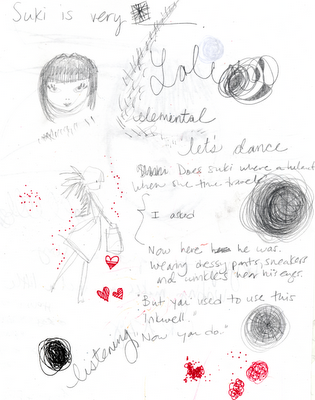 Suki is very
Loli
elemental
let's dance
Does Suki where a tulant
when she time travels
I asked
Now here he was.
Wearing dressy pants, sneakers
and wrinkles near his eyes.
"But you used to use this
Inkwell."
"Now you do."
listening